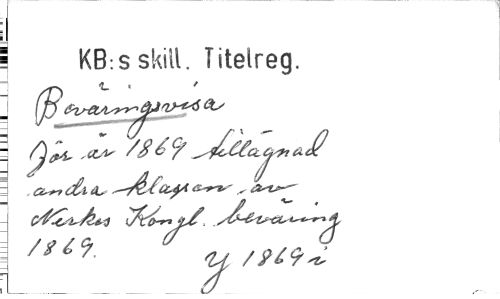 KB:s skill. Titelreg.
Beväringsvisa
för år 1869 tillägnad
andra klassen av
Nerkes Kongl. beväring
1869.
Y 1869 i